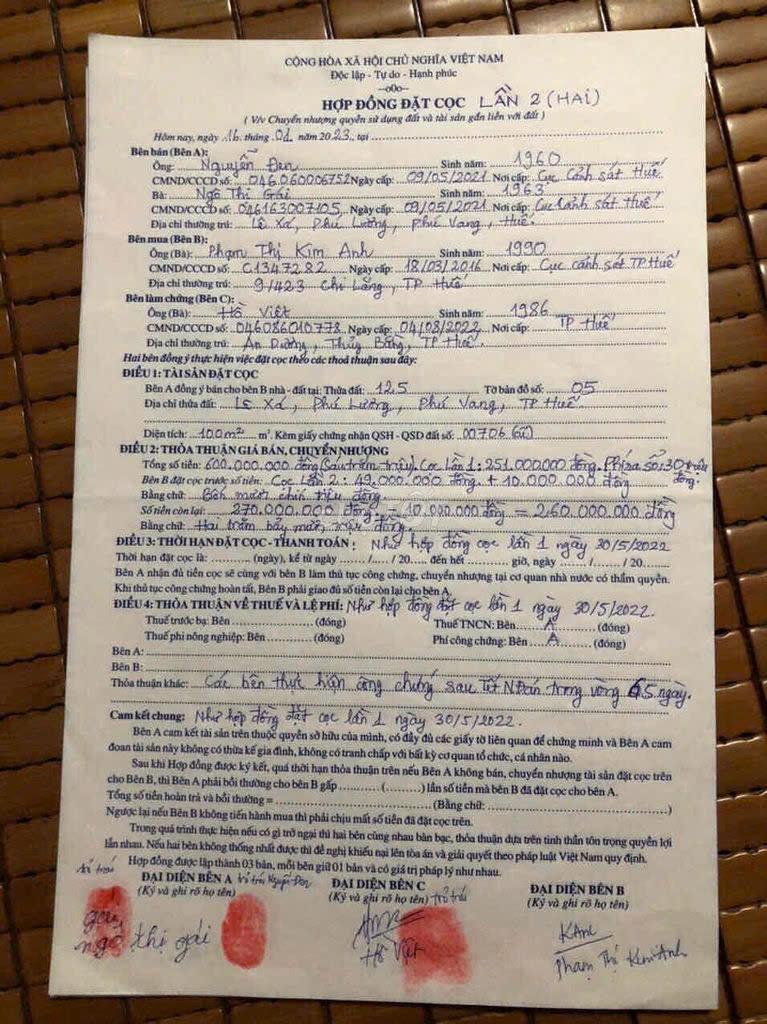 CỘNG HÒA XÃ HỘI CHỦ NGHĨA VIỆT NAM
Độc lập - Tự do - Hạnh phúc
---o0o---
HỢP ĐỒNG ĐẶT CỌC LẦN 2 (HAI)
( V/v Chuyển nhượng quyền sử dụng đất và tài sản gắn liền với đất )
Hôm nay, ngày 16 tháng 01 năm 2023, tại
Bên bán (Bên A):
Ông: Nguyễn Đen Sinh năm: 1960
CMND/CCCD số: 046060006752 Ngày cấp: 09/05/2021 Nơi cấp: Cục Cảnh sát Huế
Bà: Ngô Thị Gái Sinh năm: 1963
CMND/CCCD số: 046163007105 Ngày cấp: 09/05/2021 Nơi cấp: Cục Cảnh sát Huế
Địa chỉ thường trú: Lê Xá, Phú Lương, Phú Vang, Huế
Bên mua (Bên B):
Ông (Bà): Phạm Thị Kim Anh Sinh năm: 1990
CMND/CCCD số: C1347282 Ngày cấp: 18/03/2016 Nơi cấp: Cục cảnh sát TP Huế
Địa chỉ thường trú: 9/423 Chi Lăng, TP Huế
Bên làm chứng (Bên C):
Ông (Bà): Hồ Việt Sinh năm: 1986
CMND/CCCD số: 046086010778 Ngày cấp: 04/08/2022 Nơi cấp: TP Huế
Địa chỉ thường trú: An Dương, Thủy Bằng, TP Huế.
Hai bên đồng ý thực hiện việc đặt cọc theo các thoả thuận sau đây:
ĐIỀU 1: TÀI SẢN ĐẶT CỌC
Bên A đồng ý bán cho bên B nhà - đất tại: Thửa đất: 125 Tờ bản đồ số: 05
Địa chỉ thửa đất: Lê Xá, Phú Lương, Phú Vang, TP Huế
Diện tích: 100m² m². Kèm giấy chứng nhận QSH - QSD đất số: 00706
ĐIỀU 2: THỎA THUẬN GIÁ BÁN, CHUYỂN NHƯỢNG
Tổng số tiền: 600.000.000 đồng (Sáu trăm triệu). Cọc Lần 1: 251.000.000 đồng. Phí ra sổ: 30 triệu đồng.
Bên B đặt cọc trước số tiền: Cọc Lần 2: 49.000.000 đồng + 10.000.000 đồng
Bằng chữ: Bốn mươi chín triệu đồng
Số tiền còn lại: 270.000.000 đồng - 10.000.000 đồng = 260.000.000 đồng
Bằng chữ: Hai trăm bảy mươi triệu đồng.
ĐIỀU 3: THỜI HẠN ĐẶT CỌC - THANH TOÁN: Như hợp đồng cọc lần 1 ngày 30/5/2022
Thời hạn đặt cọc là: ............ (ngày), kể từ ngày ....../....../ 20...... đến hết ............ giờ, ngày ....../....../ 20......
Bên A nhận đủ tiền cọc sẽ cùng với bên B làm thủ tục công chứng, chuyển nhượng tại cơ quan nhà nước có thẩm quyền.
Khi thủ tục công chứng hoàn tất, Bên B phải giao đủ số tiền còn lại cho bên A.
ĐIỀU 4: THỎA THUẬN VỀ THUẾ VÀ LỆ PHÍ: Như hợp đồng đặt cọc lần 1 ngày 30/5/2022.
Thuế trước bạ: Bên ............ (đóng) Thuế TNCN: Bên A (đóng)
Thuế phi nông nghiệp: Bên ............ (đóng) Phí công chứng: Bên A (đóng)
Bên A:
Bên B:
Thỏa thuận khác: Các bên thực hiện công chứng sau Tết N.Đán trong vòng 65 ngày.
Cam kết chung: Như hợp đồng đặt cọc lần 1 ngày 30/5/2022.
Bên A cam kết tài sản trên thuộc quyền sở hữu của mình, có đầy đủ các giấy tờ liên quan để chứng minh và Bên A cam
đoan tài sản này không có thừa kế gia đình, không có tranh chấp với bất kỳ cơ quan tổ chức, cá nhân nào.
Sau khi Hợp đồng được ký kết, quá thời hạn thỏa thuận trên nếu Bên A không bán, chuyển nhượng tài sản đặt cọc trên
cho Bên B, thì Bên A phải bồi thường cho bên B gấp ............ (............) lần số tiền mà bên B đã đặt cọc cho bên A.
Tổng số tiền hoàn trả và bồi thường = ............ (Bằng chữ: ............)
Ngược lại nếu Bên B không tiến hành mua thì phải chịu mất số tiền đã đặt cọc trên.
Trong quá trình thực hiện nếu có gì trở ngại thì hai bên cùng nhau bàn bạc, thỏa thuận dựa trên tinh thần tôn trọng quyền lợi
lẫn nhau. Nếu hai bên không thống nhất được thì đề nghị khiếu nại lên tòa án và giải quyết theo pháp luật Việt Nam quy định.
Hợp đồng được lập thành 03 bản, mỗi bên giữ 01 bản và có giá trị pháp lý như nhau.
trỏ trái ĐẠI DIỆN BÊN A trỏ trái Nguyễn Đen ĐẠI DIỆN BÊN C ĐẠI DIỆN BÊN B
(Ký và ghi rõ họ tên) (Ký và ghi rõ họ tên) trỏ trái (Ký và ghi rõ họ tên)
gái
ngô thị gái Hồ Việt KAnh
Phạm Thị Kim Anh